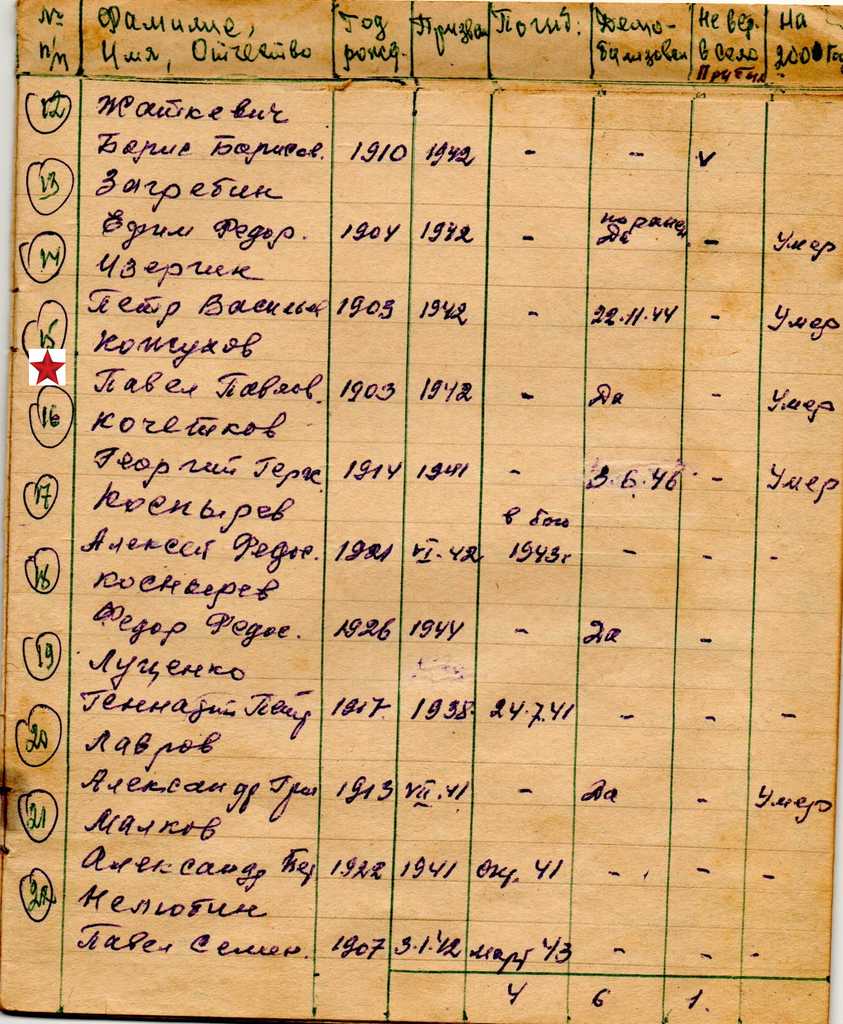 № п/п Фамилие, Имя, Отчество Год рожд. Призван Погиб: Демо-билизован Не вер. в село Притык На 2000 Год
12 Жаткевич
Борис Борисов. 1910 1942 - - v
13 Загребин
Ефим Федор. 1904 1942 - по ранен. Да - Умер
14 Изергин
Петр Васильев 1903 1942 - 22.11.44 - Умер
15 Кожухов
Павел Павлов. 1903 1942 - Да - Умер
16 Кочетков
Георгий Герас. 1914 1941 - 3.6.46 - Умер
17 Коснырев в бою
Алексей Федос. 1921 VI.42 1943г - - -
18 Коснырев
Федор Федос. 1926 1944 - Да -
19 Луценко
Геннадий Петр 1917. 1938. 24.7.41 - - -
20 Лавров
Александр Григ 1913 VII.41 - Да - Умер
21 Малков
Александр 1922 1941 Окт. 41 - - -
22 Нелюбин
Павел Семен. 1907 3.1.42 март 43 - - -
4 6 1.